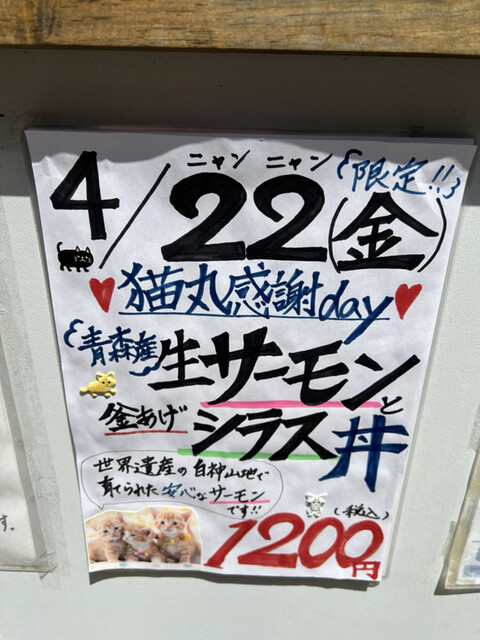 ニャン ニャン
4/22(金) 限定!!
猫丸感謝day
青森産 生サーモンと
釜あげ シラス丼
世界遺産の白神山地で
育てられた安心なサーモン
です!!
(税込)
1200円
す。